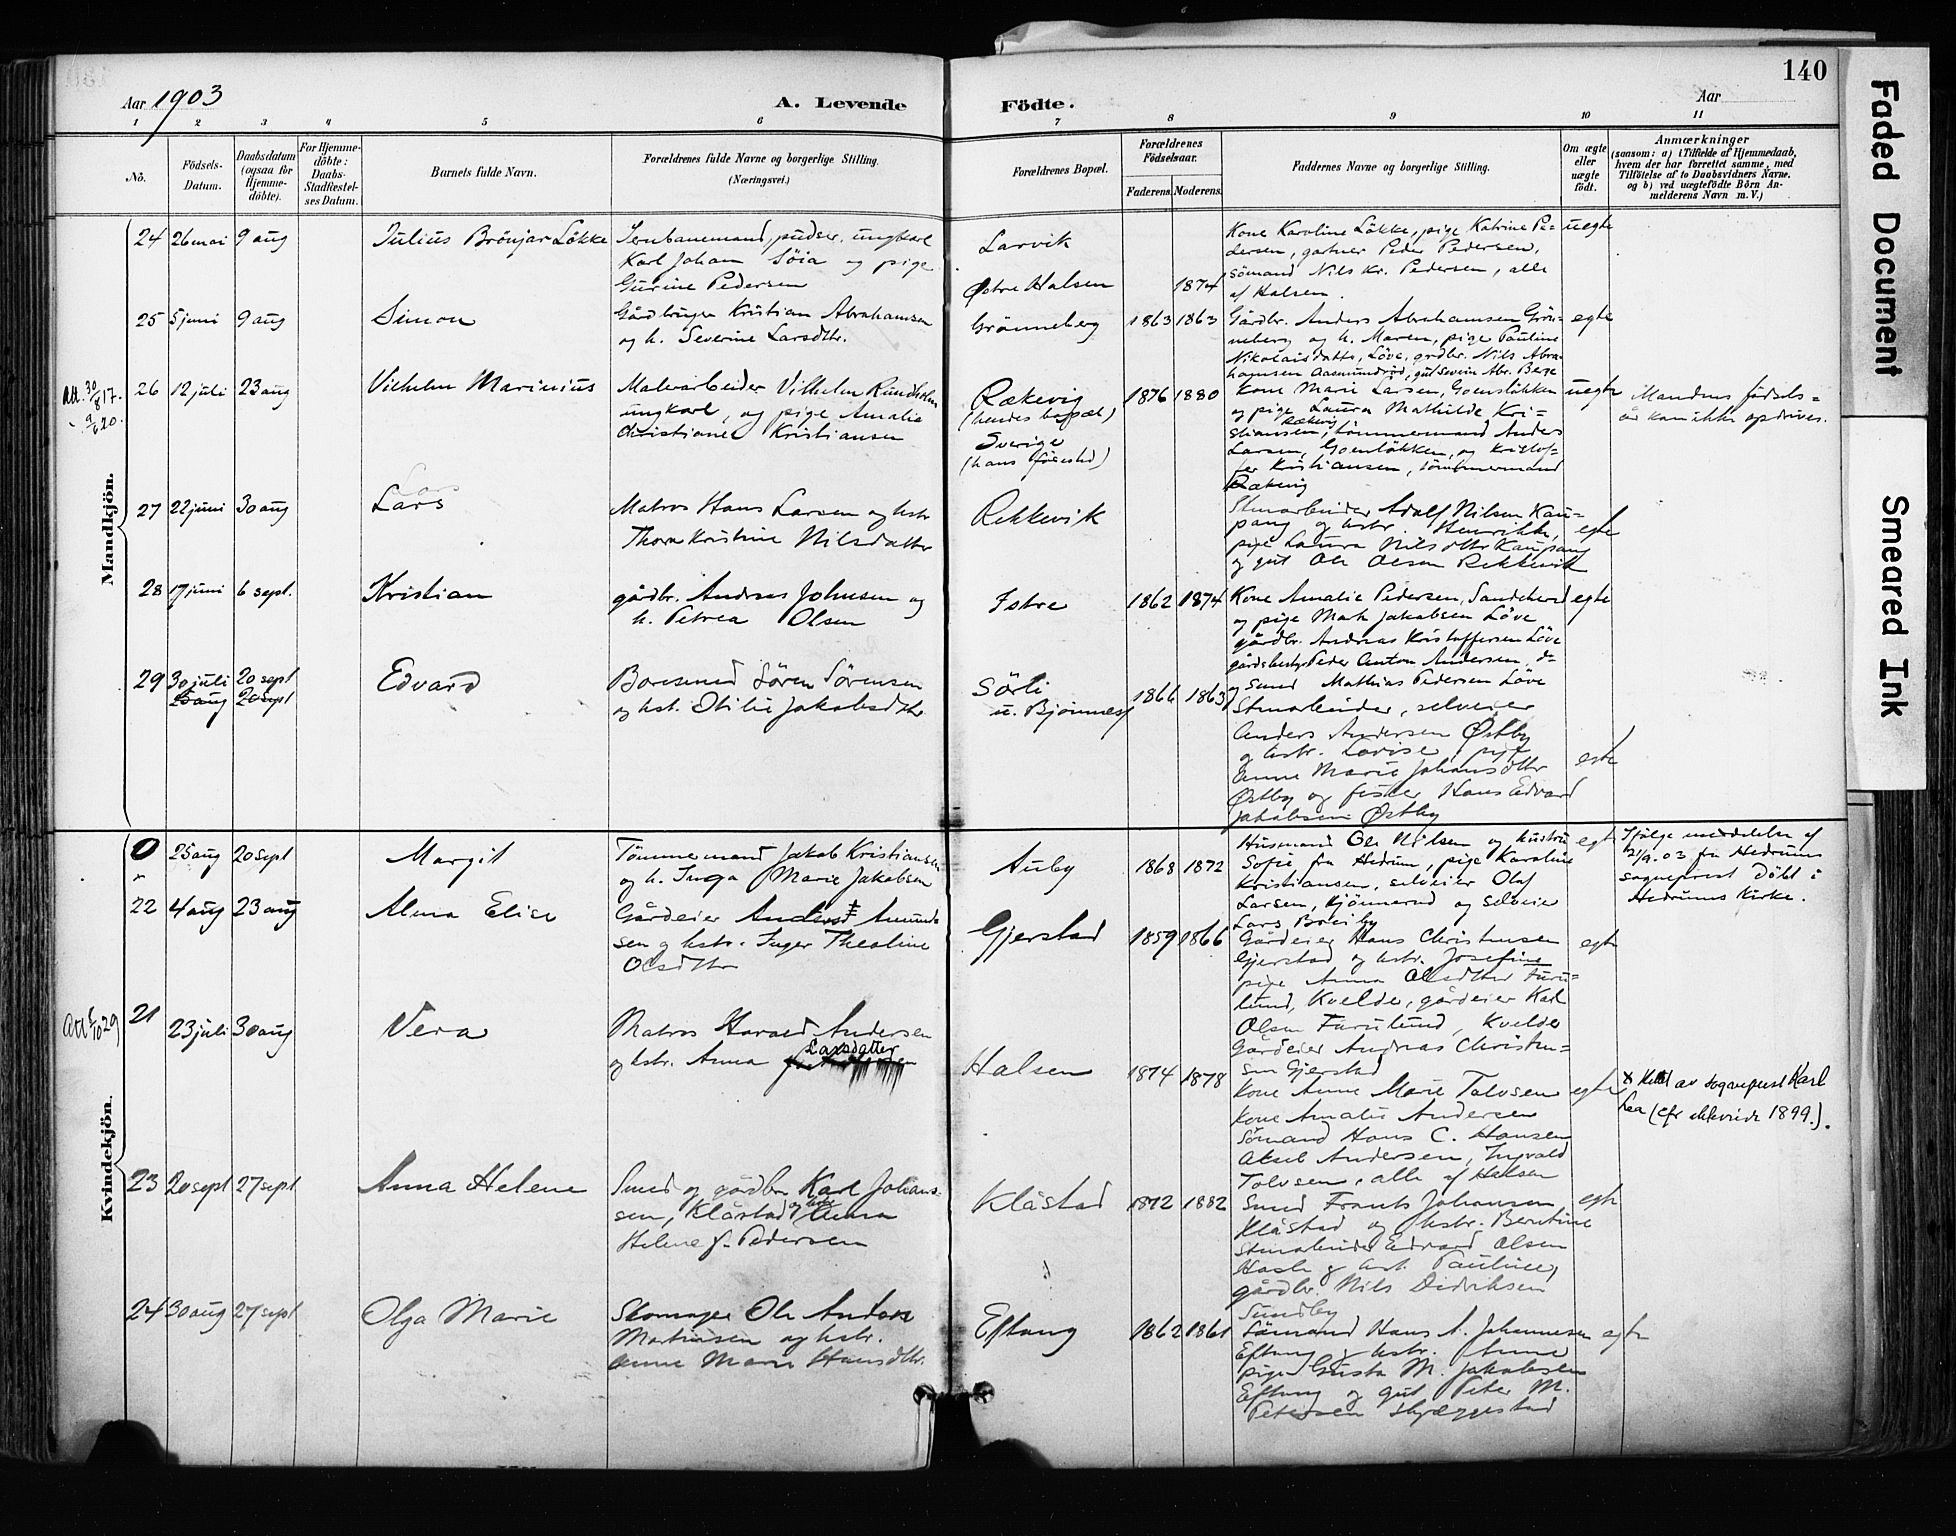 140
Faded Document
Smeared Ink
Aar 1903
A. Levende Födte.
Aar
1 2 3 4 5 6 7 8 9 10 11
No.
Födsels-Datum.
Daabsdatum (ogsaa for Hjemme-döbte).
For Hjemme-döbte: Daabs-Stadfæstel-ses Datum.
Barnets fulde Navn.
Forældrenes fulde Navne og borgerlige Stilling. (Næringsvei.)
Forældrenes Bopæl.
Forældrenes Födselsaar.
Faderens. Moderens.
Faddernes Navne og borgerlige Stilling.
Om ægte eller uægte födt.
Anmærkninger
(saasom: a) i Tilfælde af Hjemmedaab,
hvem der har forrettet samme, med
Tilföielse af to Daabsvidners Navne.
og b) ved uægtefödte Börn An-
melderens Navn m. V.)
Mandkjön.
24 26 mai 9 aug
Julius Brönjar Løkke
Jernbanemand, pudser, ungkarl
Karl Johan Söia og pige
Gurine Pedersen
Larvik
Østre Halsen
1874
Kone Karoline Løkke, pige Katrine Pe-
dersen, gartner Peder Pedersen,
sömand Nils Kr. Pedersen, alle
af Halsen.
uegte
25 5 juni 9 aug
Simon
Gårdbruger Kristian Abrahamsen
og h. Severine Larsdtr.
Grönneberg
1863 1863
Gårdbr. Anders Abrahamsen Grön-
neberg og h. Maren, pige Pauline
Nikolaisdatter, Löve, grdbr. Nils Abra-
hamsen Aasmundrød, gut Severin Abr. Berge
egte
Att. 30/8 17.
26 12 juli 23 aug
Vilhelm Marinius
Malerarbeider Vilhelm Rundholm
ungkarl, og pige Amalie
Christiane Kristiansen
Rækevig
(hendes bopæl)
Sverige
(hans födested)
1876 1880
Kone Marie Larsen, Goenløkken
og pige Laura Mathilde Kri-
stiansen, Rækevig, tömmermand Anders
Larsen, Goenløkken, og Kristof-
fer Kristiansen, tömmermand
Rækevig
uegte
Mandens födsels=
år kan ikke opdrives.
27 22 juni 30 aug
Lars
Matros Hans Larsen og hstr
Thora Kristine Nilsdatter
Rekkevik
Stenarbeider Adolf Nilsen Kau-
pang og hstr. Henrikke,
pige Laura Nilsdttr Kaupang
og gut Ole Olsen Rekkevik
egte
28 17 juni 6 sept.
Kristian
gårdbr. Andreas Johnsen og
h. Petrea Olsen
Istre
1862 1874
Kone Amalie Pedersen, Sandeherred
og pige Math. Jakobsen Löve
gårdbr. Andreas Kristoffersen Löve
gårdsbestyr Peder Anton Andersen, do
og Smed Mathias Pedersen Löve
egte
29 30 juli 20 sept
aug 20 sept
Edvard
Sören Sörensen
og hst. Otilie Jakobsdtr.
Sörli
u. Bjönnes
1866 1863
Stenarbeider, selveier
Anders Andersen Østby
og hstr. Lovise, pige
Anne Marie Johansdttr
Østby og fisker Hans Edvard
Jakobsen Østby
egte
Kvindekjön.
0 25 aug 20 sept
Margit
Tömmermand Jakob Kristiansen
og h. Inga Marie Jakobsen
Auby
1868 1872
Husmand Ole Nilsen og hustru
Sofie fra Hedrum, pige Karoline
Kristiansen, selveier Olaf
Larsen, Kjönnerud og selveier
Lars Breiby
egte
Ifölge meddelelse af
21/9.03 fra Hedrums
sogneprest Döbt i
Hedrums Kirke.
22 4 aug 23 aug
Alma Elise
Gårdeier Anders Amund-
sen og hstr. Inger Theoline
Olsdttr
Gjerstad
1859 1866
Gårdeier Hans Christensen
Gjerstad og hstr. Josefine
pige Anna Olsdtter Furu-
lund, Kvelde, gårdeier Karl
Olsen Furulund, Kvelde
Gårdeier Andreas Christen-
sen Gjerstad
egte
Att 5/10 29
21 23 juli 30 aug
Vera
Matros Harald Andersen
og hstr. Anna Larsdatter
Halsen
1874 1878
Kone Anne Marie Tolvsen
Kone Amalie Andersen
Sömand Hans C. Hansen
Aksel Andersen, Ingvald
Tolvsen, alle af Halsen
egte
av sogneprest Karl
(cfr 1899.).
23 20 sept 27 sept
Anna Helene
Smed og gårdbr Karl Johan-
sen, Klåstad og hstr Anna
Helene f. Pedersen
Klåstad
1872 1882
Smed Frants Johansen
Klåstad og hstr. Berntine
Stenarbeider Edvard Olsen
Hasle og hst. Pauline,
gårdbr. Nils Didriksen
Sundby
egte
24 30 aug 27 sept
Olga Marie
Skomager Ole Anders
Martinsen og hstr.
Anne Marie Hansdttr.
Eftang
1862 1861
Sömand Hans A. Johannesen
Eftang og hstr. Anne
pige Gusta M. Jakobsen
Eftang og gut Peter M.
Petersen Skjæggestad
egte